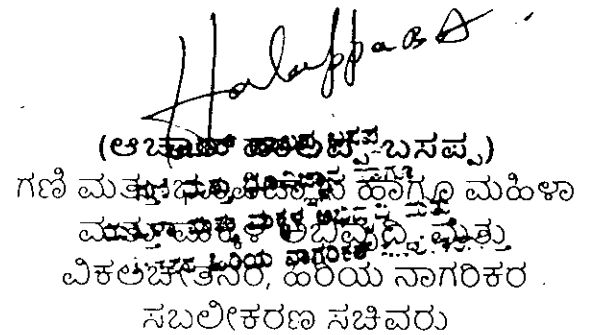 Halappa B A
(ಆಚಾರ್ ಹಾಲಪ್ಪ ಬಸಪ್ಪ)
ಗಣಿ ಮತ್ತು ಭೂವಿಜ್ಞಾನ ಹಾಗೂ ಮಹಿಳಾ
ಮತ್ತು ಮಕ್ಕಳ ಅಭಿವೃದ್ಧಿ, ಮತ್ತು
ವಿಕಲಚೇತನರ, ಹಿರಿಯ ನಾಗರಿಕರ
ಸಬಲೀಕರಣ ಸಚಿವರು